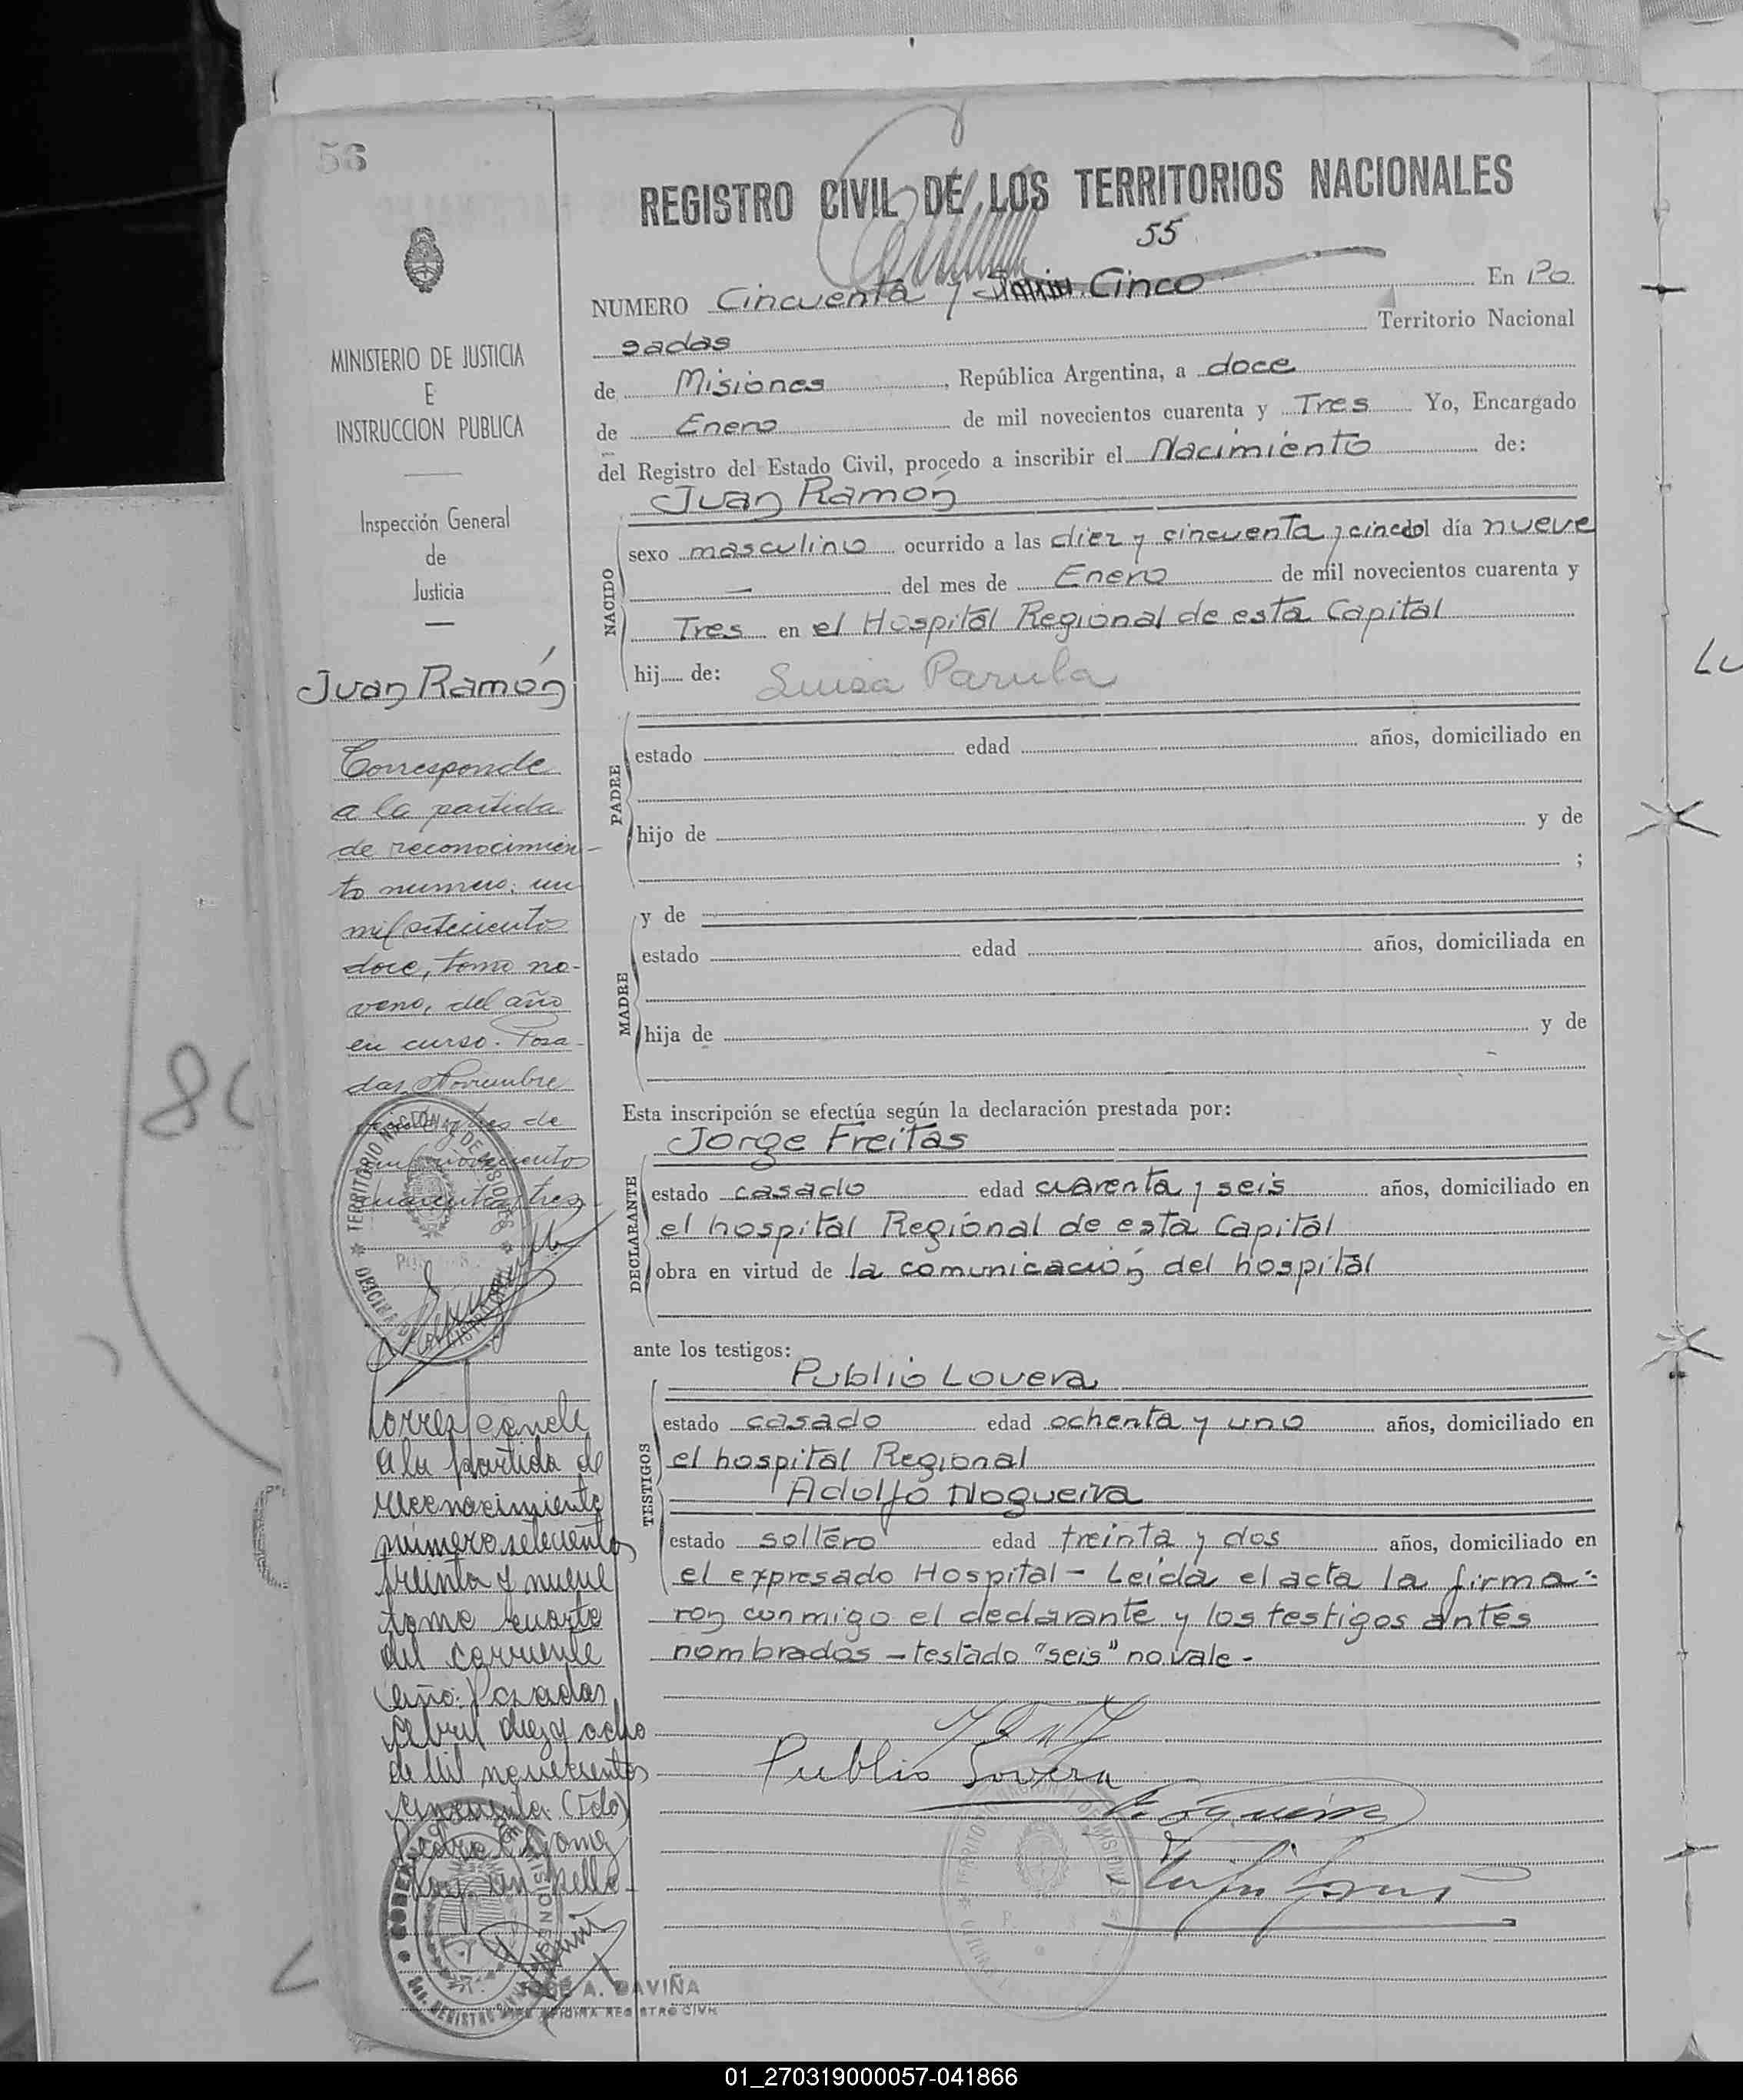 56
REGISTRO CIVIL DE LOS TERRITORIOS NACIONALES
55
NUMERO Cincuenta y Cinco En Po
sadas Territorio Nacional
de Misiones, República Argentina, a doce
de Enero de mil novecientos cuarenta y Tres Yo, Encargado
del Registro del Estado Civil, procedo a inscribir el Nacimiento de:
Juan Ramón
NACIDO
sexo masculino ocurrido a las diez y cincuenta y cinco del día nueve
— del mes de Enero de mil novecientos cuarenta y
Tres en el Hospital Regional de esta Capital
hij de: Luisa Parula
PADRE
estado edad años, domiciliado en
hijo de y de
;
MADRE
y de
estado edad años, domiciliada en
hija de y de
Esta inscripción se efectúa según la declaración prestada por:
Jorge Freitas
DECLARANTE
estado casado edad cuarenta y seis años, domiciliado en
el hospital Regional de esta Capital
obra en virtud de la comunicación del hospital
ante los testigos:
Publio Lovera
TESTIGOS
estado casado edad ochenta y uno años, domiciliado en
el hospital Regional
Adolfo Nogueira
estado soltero edad treinta y dos años, domiciliado en
el expresado Hospital - Leida el acta la firma-
ron conmigo el declarante y los testigos antes
nombrados - testado "seis" no vale -
Publio Lovera
MINISTERIO DE JUSTICIA
E
INSTRUCCION PUBLICA
Inspección General
de
Justicia
Juan Ramón
Corresponde
a la partida
de reconocimien-
to numero: un
mil setecientos
doce, tomo no-
veno, del año
en curso. Posa-
das, Noviembre
tres de
mil novecientos
cuarenta y tres
TERRITORIO NACIONAL DE MISIONES
Corresponde
a la partida de
reconocimiento
número setecientos
treinta y nueve
tomo cuarto
del corriente
año: Posadas
Abril diez y ocho
de mil novecientos
cincuenta (Fdo)
Pedro
Hay un sello
JOSE A. DAVIÑA
OFICINA REGISTRO CIVIL
Lu
01_270319000057-041866